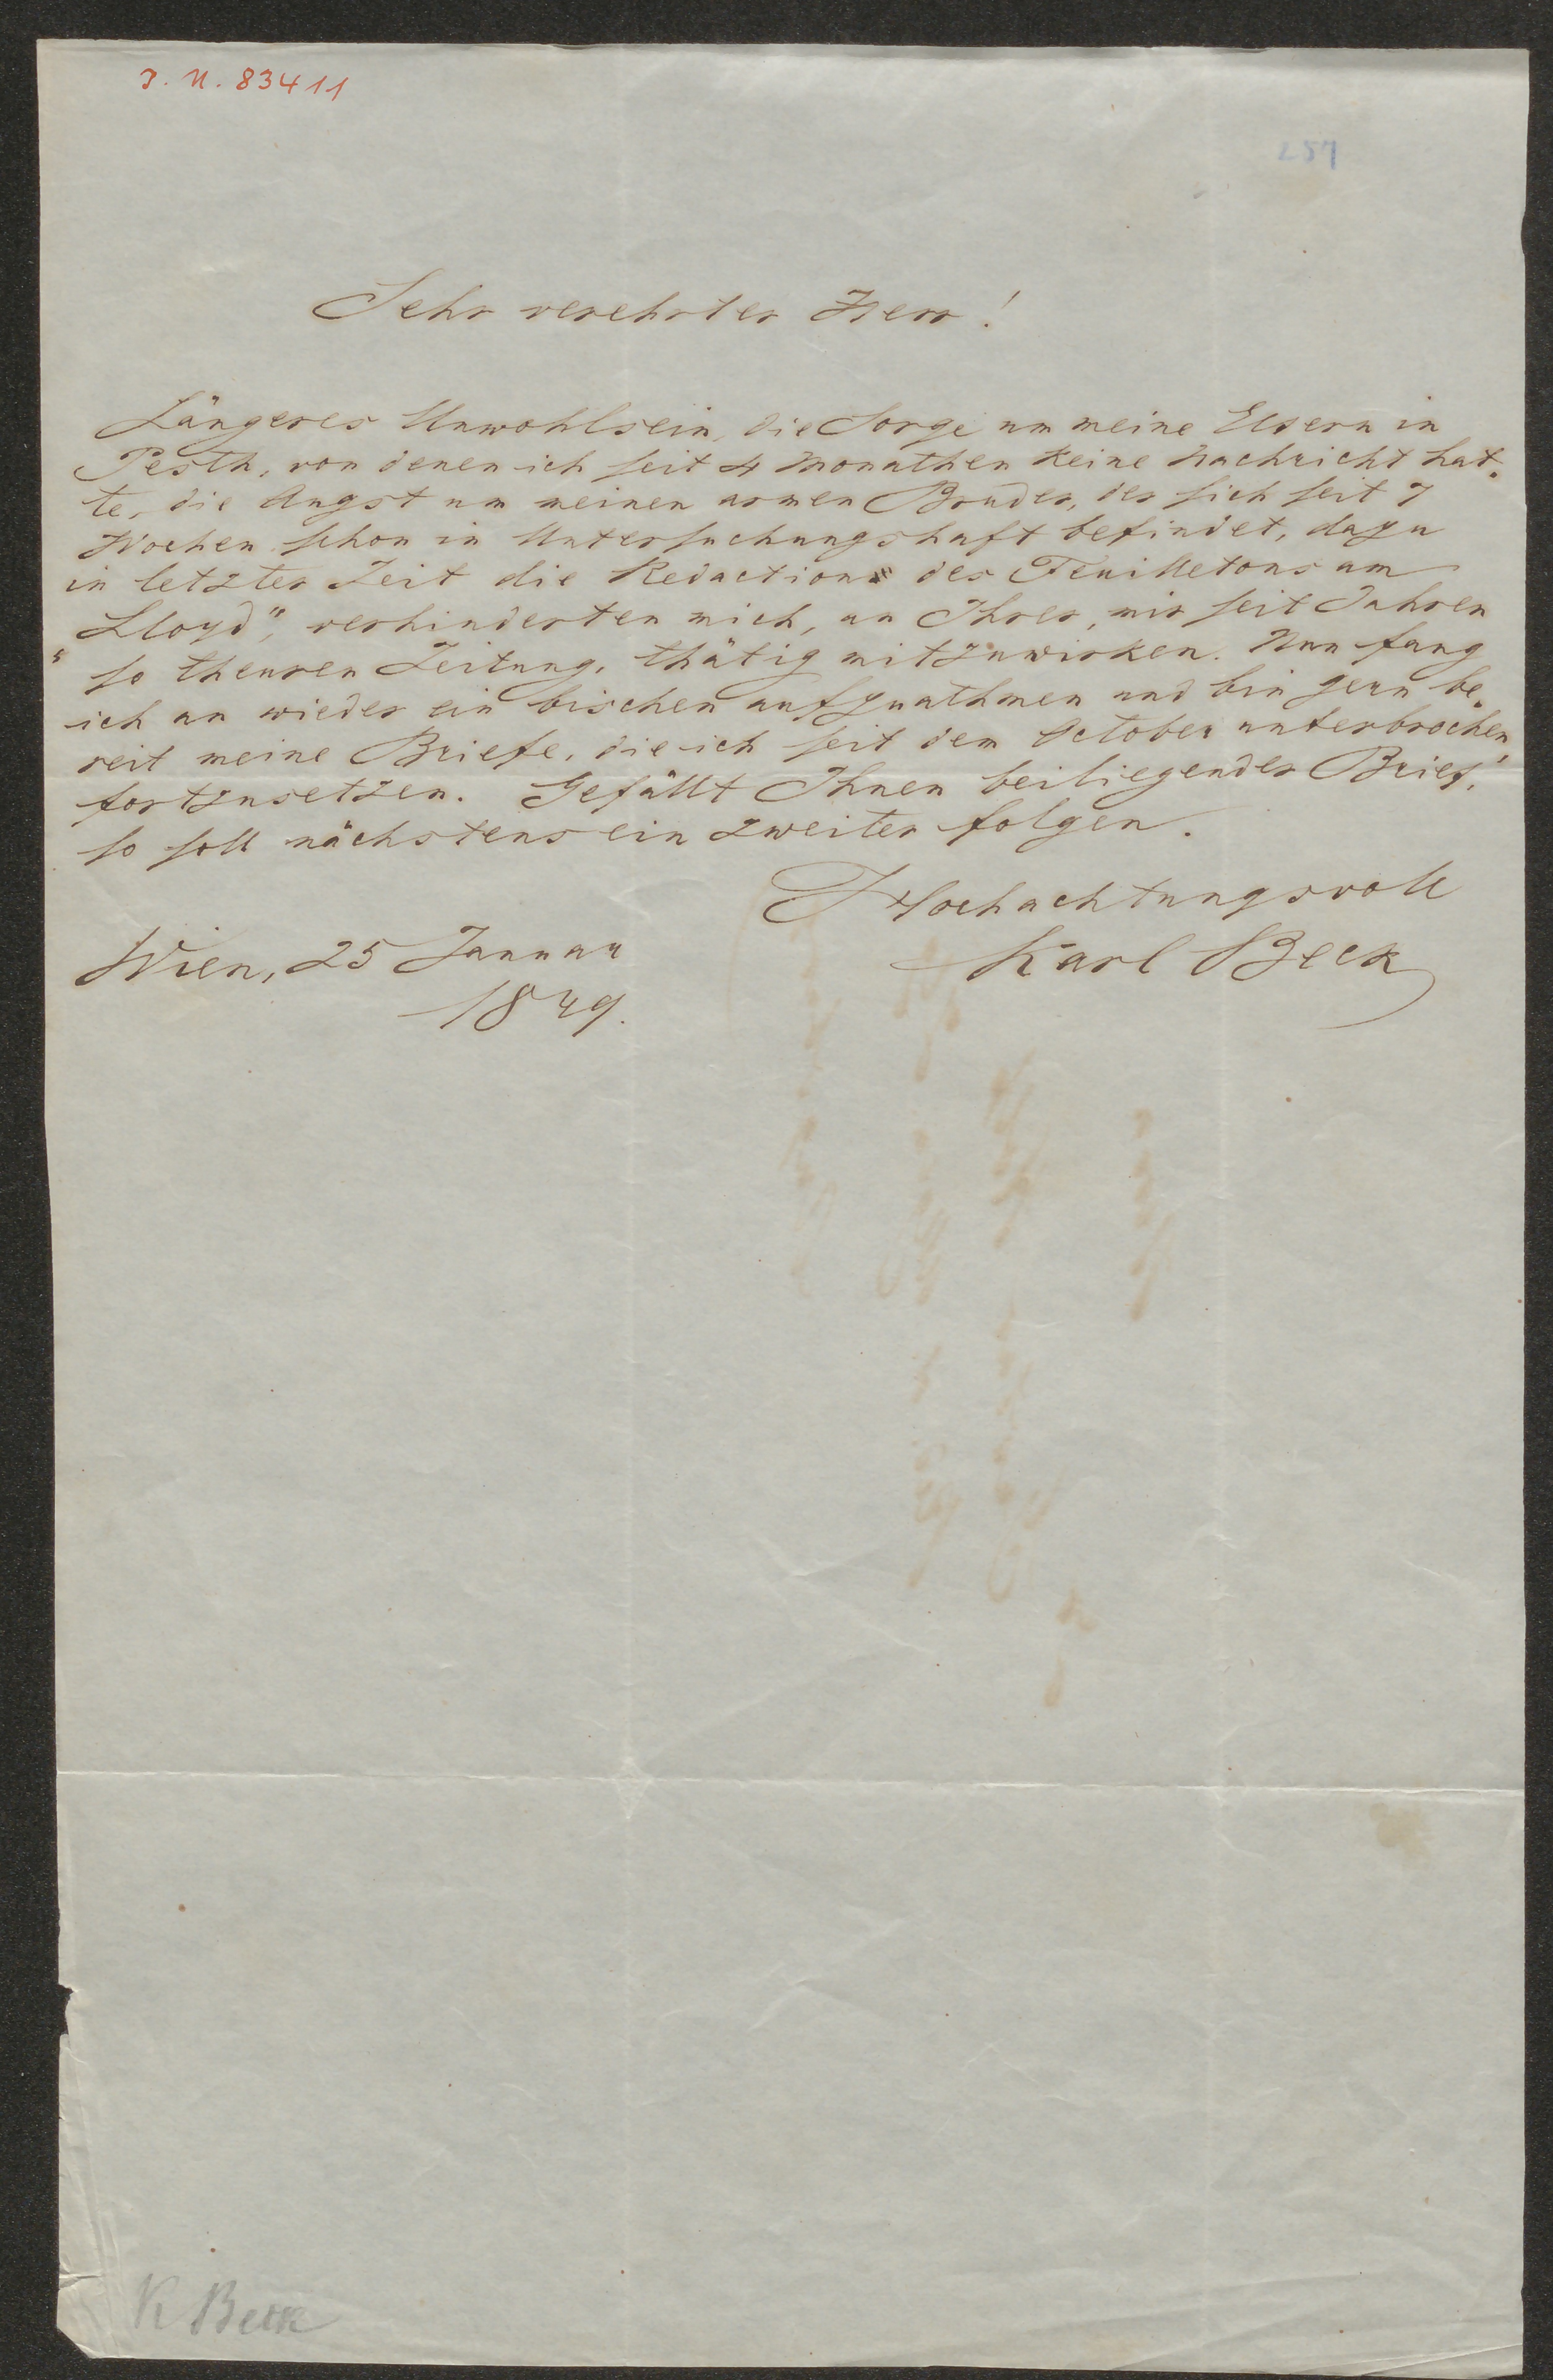 J. N. 83411
257
Sehr verehrter Herr!
Längeres Unwohlsein, die Sorge um meine Eltern in
Pesth, von denen ich seit 4 Monathen keine Nachricht hat-
te, die Angst um meinen armen Bruder, der sich seit 7
Wochen schon in Untersuchungshaft befindet, dazu
in letzter Zeit die Redaction des Feuilletons am
„Lloyd“, verhinderten mich, an Ihrer, mir seit Jahren
so theuren Zeitung, thätig mitzuwirken. Nun fang
ich an wieder ein bischen aufzuathmen und bin gern be-
reit meine Briefe, die ich seit dem October unterbrochen,
fortzusetzen. Gefällt Ihnen beiliegender Brief,
so soll nächstens ein zweiter folgen.
Hochachtungsvoll
Karl Beck
Wien, 25 Januar
1849.
K Beck